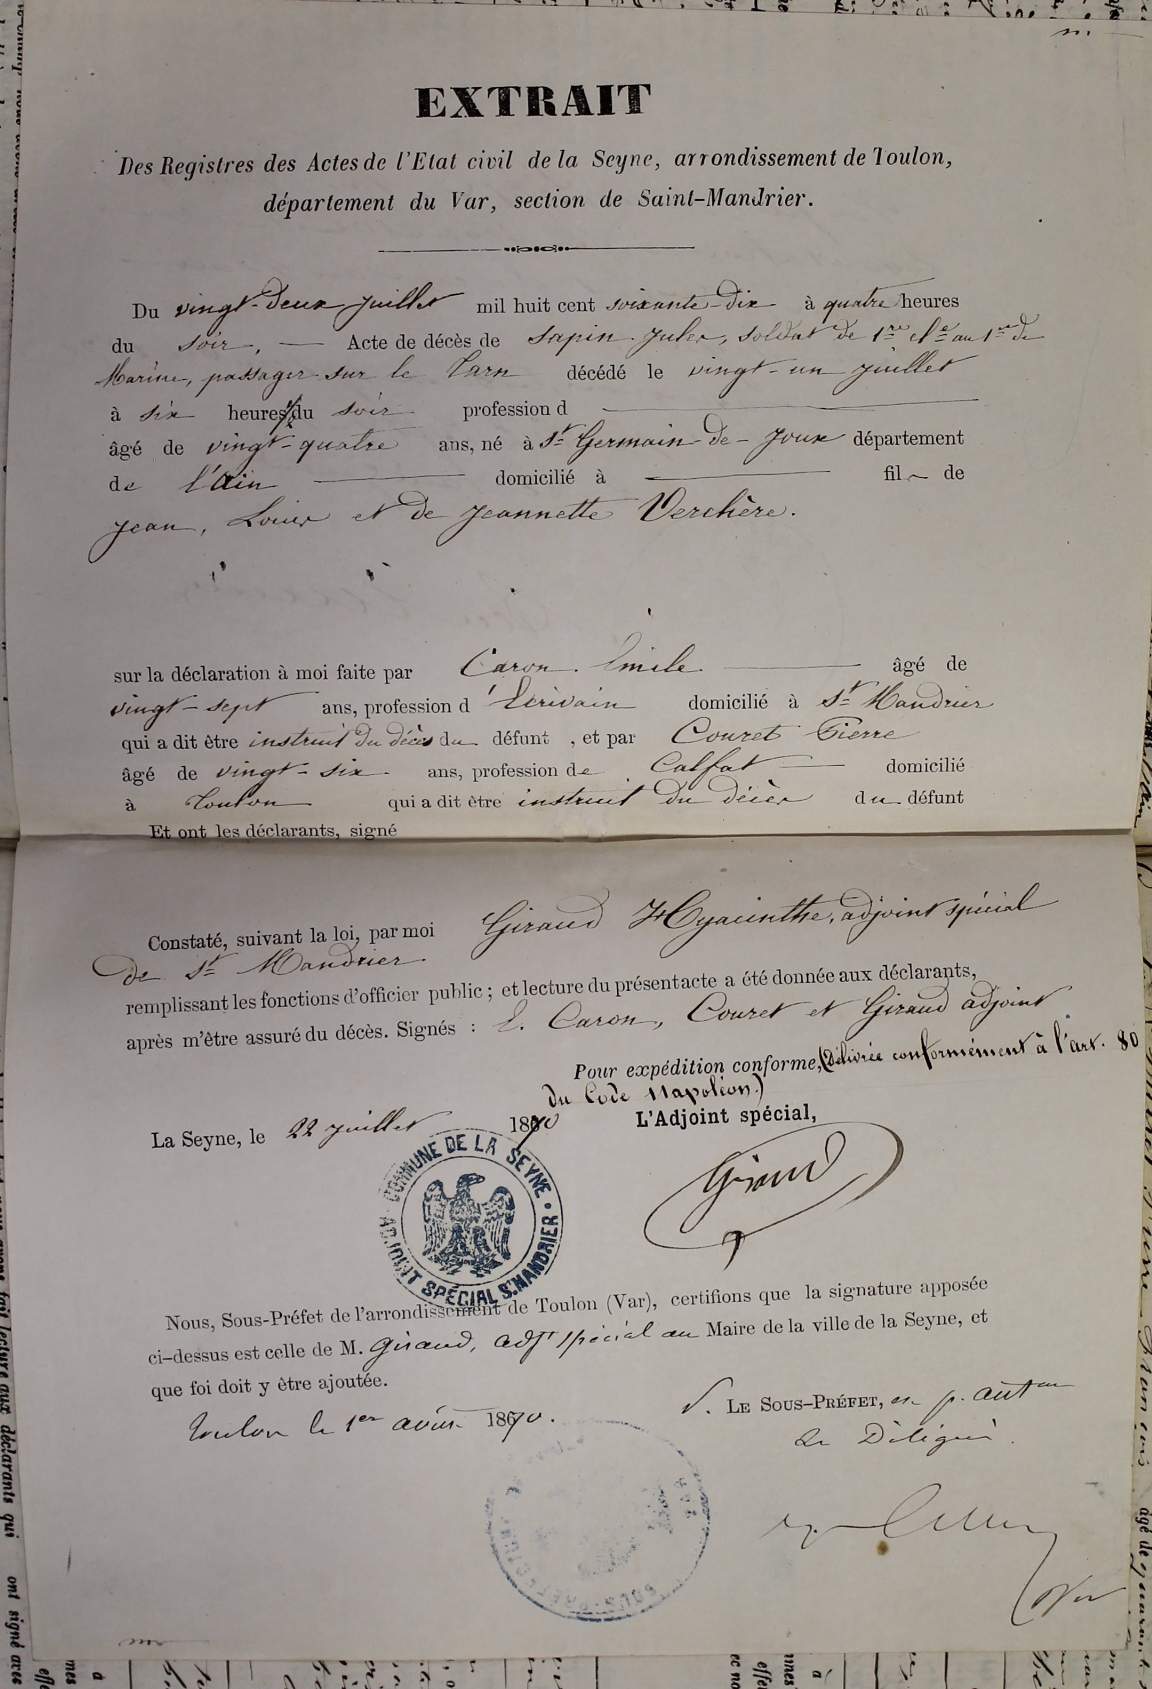 EXTRAIT
Des Registres des Actes de l'Etat civil de la Seyne, arrondissement de Toulon,
département du Var, section de Saint-Mandrier.
Du vingt-deux juillet mil huit cent soixante-dix à quatre heures
du soir, — Acte de décès de Sapin Jules, soldat de 1re cl.e au 1er de
Marine, passager sur le Tarn décédé le vingt-un juillet
à six heures du soir profession d
âgé de vingt-quatre ans, né à St Germain-de-Joux département
de l'Ain domicilié à fils de
Jean, Louis et de Jeannette Verchère.
sur la déclaration à moi faite par Caron Emile âgé de
vingt-sept ans, profession d'Ecrivain domicilié à St Mandrier
qui a dit être instruit du décès du défunt, et par Couret Pierre
âgé de vingt-six ans, profession de Calfat domicilié
à Toulon qui a dit être instruit du décès du défunt
Et ont les déclarants, signé
Constaté, suivant la loi, par moi Giraud Hyacinthe, adjoint spécial
de St Mandrier
remplissant les fonctions d'officier public; et lecture du présent acte a été donnée aux déclarants,
après m'être assuré du décès. Signés : E. Caron, Couret et Giraud adjoint
Pour expédition conforme, (Délivrée conformément à l'art. 80
du Code Napoléon.)
L'Adjoint spécial,
La Seyne, le 22 juillet 1870
Giraud
COMMUNE DE LA SEYNE
ADJOINT SPÉCIAL ST MANDRIER
Nous, Sous-Préfet de l'arrondissement de Toulon (Var), certifions que la signature apposée
ci-dessus est celle de M. Giraud, adjt spécial au Maire de la ville de la Seyne, et
que foi doit y être ajoutée.
Toulon le 1er août 1870.
P. LE SOUS-PRÉFET, en p. auton
Le Délégué
SOUS-PRÉFECTURE DE
VAR